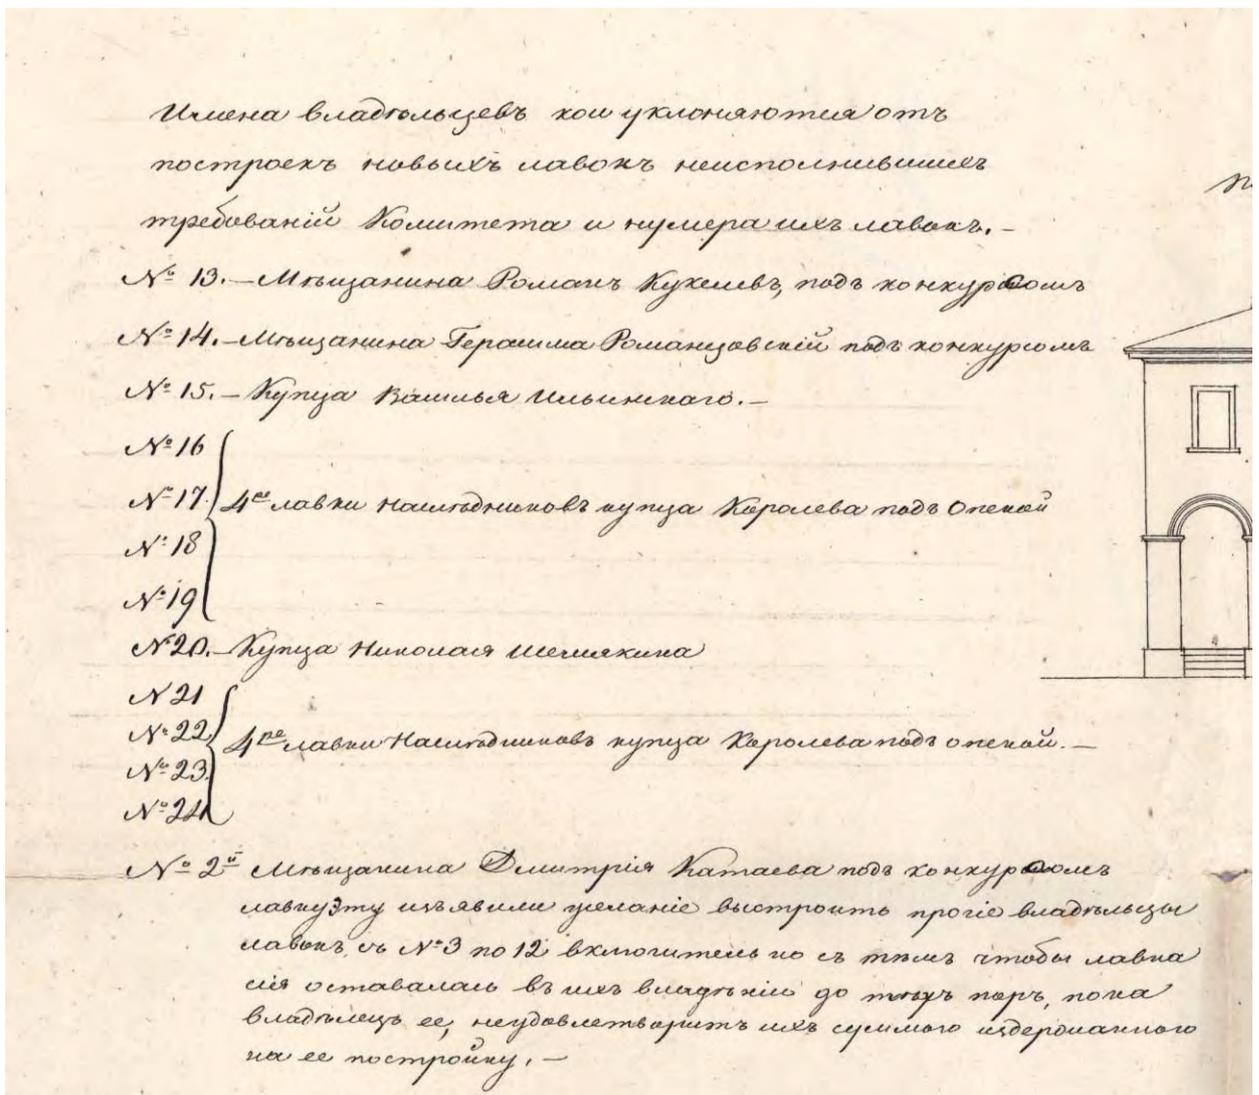 Имена владѣльцевъ кои уклоняются отъ
построекъ новыхъ лавокъ неисполнившихъ
требованій Комитета и нумера ихъ лавокъ. –
№ 13. – Мѣщанина Романъ Кухелевъ, подъ конкурсомъ
№ 14. – Мѣщанина Герасима Романцовскій подъ конкурсомъ
№ 15. – Купца Василья Ильинскаго. –
№ 16
№ 17. 4ре лавки Наслѣдниковъ купца Королева подъ Опекой
№ 18
№ 19
№ 20. – Купца Николая Шемякина
N 21
№ 22 4ре лавки Наслѣдниковъ купца Королева подъ опекой. –
№ 23.
№ 24
№ 2й Мѣщанина Дмитрія Катаева подъ конкурсомъ
лавку эту изъявили желаніе выстроить прочіе владѣльцы
лавокъ, съ № 3 по 12 включительно съ тѣмъ чтобы лавка
сія оставалась въ ихъ владѣніи до тѣхъ поръ, пока
владѣлецъ ее, неудовлетворитъ ихъ суммою издержанною
на ее постройку. –